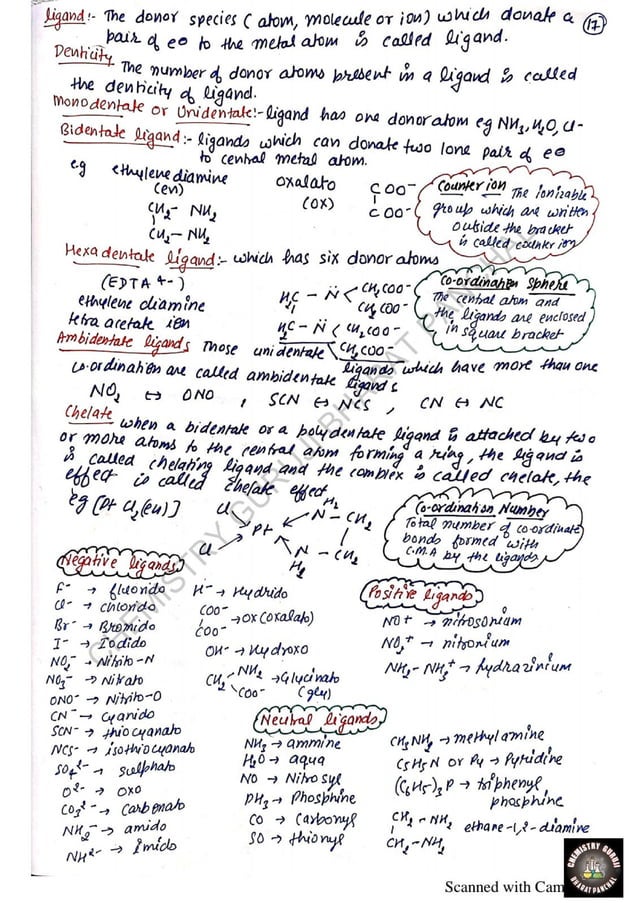 ligand :- The donor species (atom, molecule or ion) which donate a
pair of e⊖ to the metal atom is called ligand.
17
Denticity The number of donor atoms present in a ligand is called
the denticity of ligand.
Monodentate or Unidentate :- ligand has one donor atom eg NH3, H2O, Cl-
Bidentate ligand :- ligands which can donate two lone pair of e⊖
to central metal atom.
e.g ethylenediamine
(en)
CH2 - NH2
CH2 - NH2
oxalato
(ox)
COO-
COO-
Counter ion The ionizable
group which are written
outside the bracket
is called counter ion
Hexadentate ligand :- which has six donor atoms
(EDTA 4-)
ethylene diamine
tetra acetate ion
H2C - N̈ < CH2COO-
CH2COO-
H2C - N̈ < CH2COO-
CH2COO-
Co-ordination Sphere
The central atom and
the ligands are enclosed
in square bracket
Ambidentate ligands Those unidentate ligands which have more than one
co-ordination are called ambidentate ligands
NO2 ↔ ONO , SCN ↔ NCS , CN ↔ NC
Chelate when a bidentate or a polydentate ligand is attached by two
or more atoms to the central atom forming a ring, the ligand is
is called chelating ligand and the complex is called chelate, the
effect is called chelate effect
eg [Pt Cl2(en)]
Cl
Cl
Pt
H2
N - CH2
N - CH2
H2
Co-ordination Number
Total number of co-ordinate
bonds formed with
C.M.A by the ligands
Negative ligands
F- → fluorido
Cl- → chlorido
Br- → Bromido
I- → Iodido
NO2- → Nitrito-N
NO3- → Nitrato
ONO- → Nitrito-O
CN- → cyanido
SCN- → thiocyanato
NCS- → isothiocyanato
SO4 2- → sulphato
O2- → oxo
CO3 2- → Carbonato
NH2- → amido
NH2- → Imido
H- → Hydrido
COO-
COO- → ox (oxalato)
OH- → Hydroxo
CH2 - NH2
COO- → Glycinato
(gly)
Positive ligands
NO+ → nitrosonium
NO2+ → nitronium
NH2 - NH3+ → hydrazinium
Neutral ligands
NH3 → ammine
H2O → aqua
NO → Nitrosyl
PH3 → Phosphine
CO → Carbonyl
SO → thionyl
CH3NH2 → methylamine
C5H5N or Py → Pyridine
(C6H5)3P → triphenyl
phosphine
CH2 - NH2
CH2 - NH2
ethane-1,2-diamine
CHEMISTRY GURUJI BHARAT PANCHAL
CHEMISTRY GURUJI
BHARAT PANCHAL
Scanned with Cam